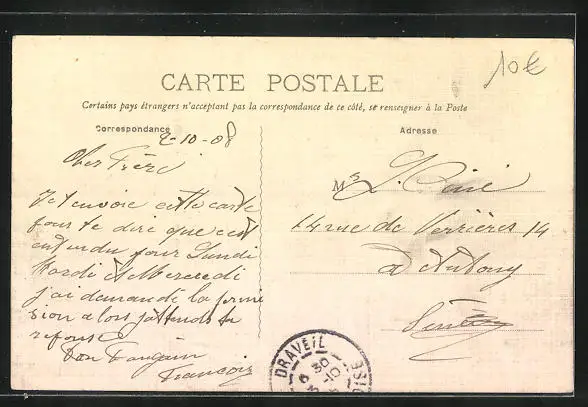 10€
CARTE POSTALE
Certains pays étrangers n'acceptant pas la correspondance de ce côté, se renseigner à la Poste
Correspondance
Adresse
2-10-08
Cher Frère
Je t envoie cette carte
pour te dire que c'est
entendu pour Lundi
Mardi et Mercredi
j'ai demandé la permi
sion alors j'attends ta
reponse
Ton
François
M
14 rue de Verrières 14
à Antony
DRAVEIL
30
-10
OISE